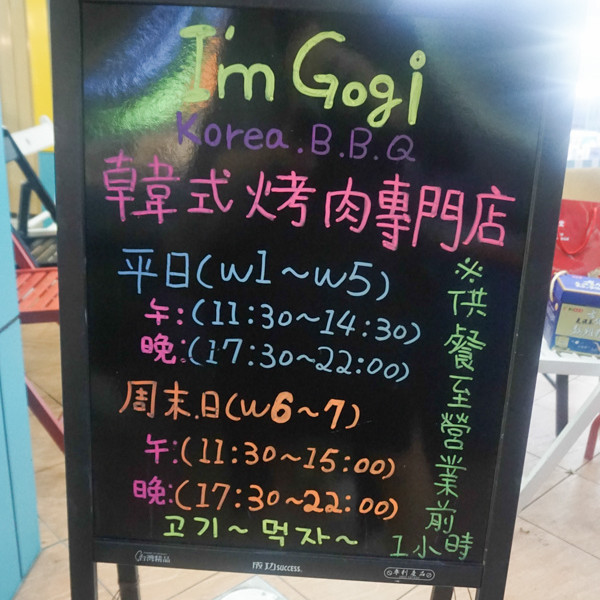 I'm Gogi
Korea.B.B.Q
韓式烤肉專門店
平日(w1~w5)
午:(11:30~14:30)
晚:(17:30~22:00)
周末.日(w6~7)
午:(11:30~15:00)
晚:(17:30~22:00)
고기~먹자~
※供餐至營業前
1小時
成功 success.
專利產品